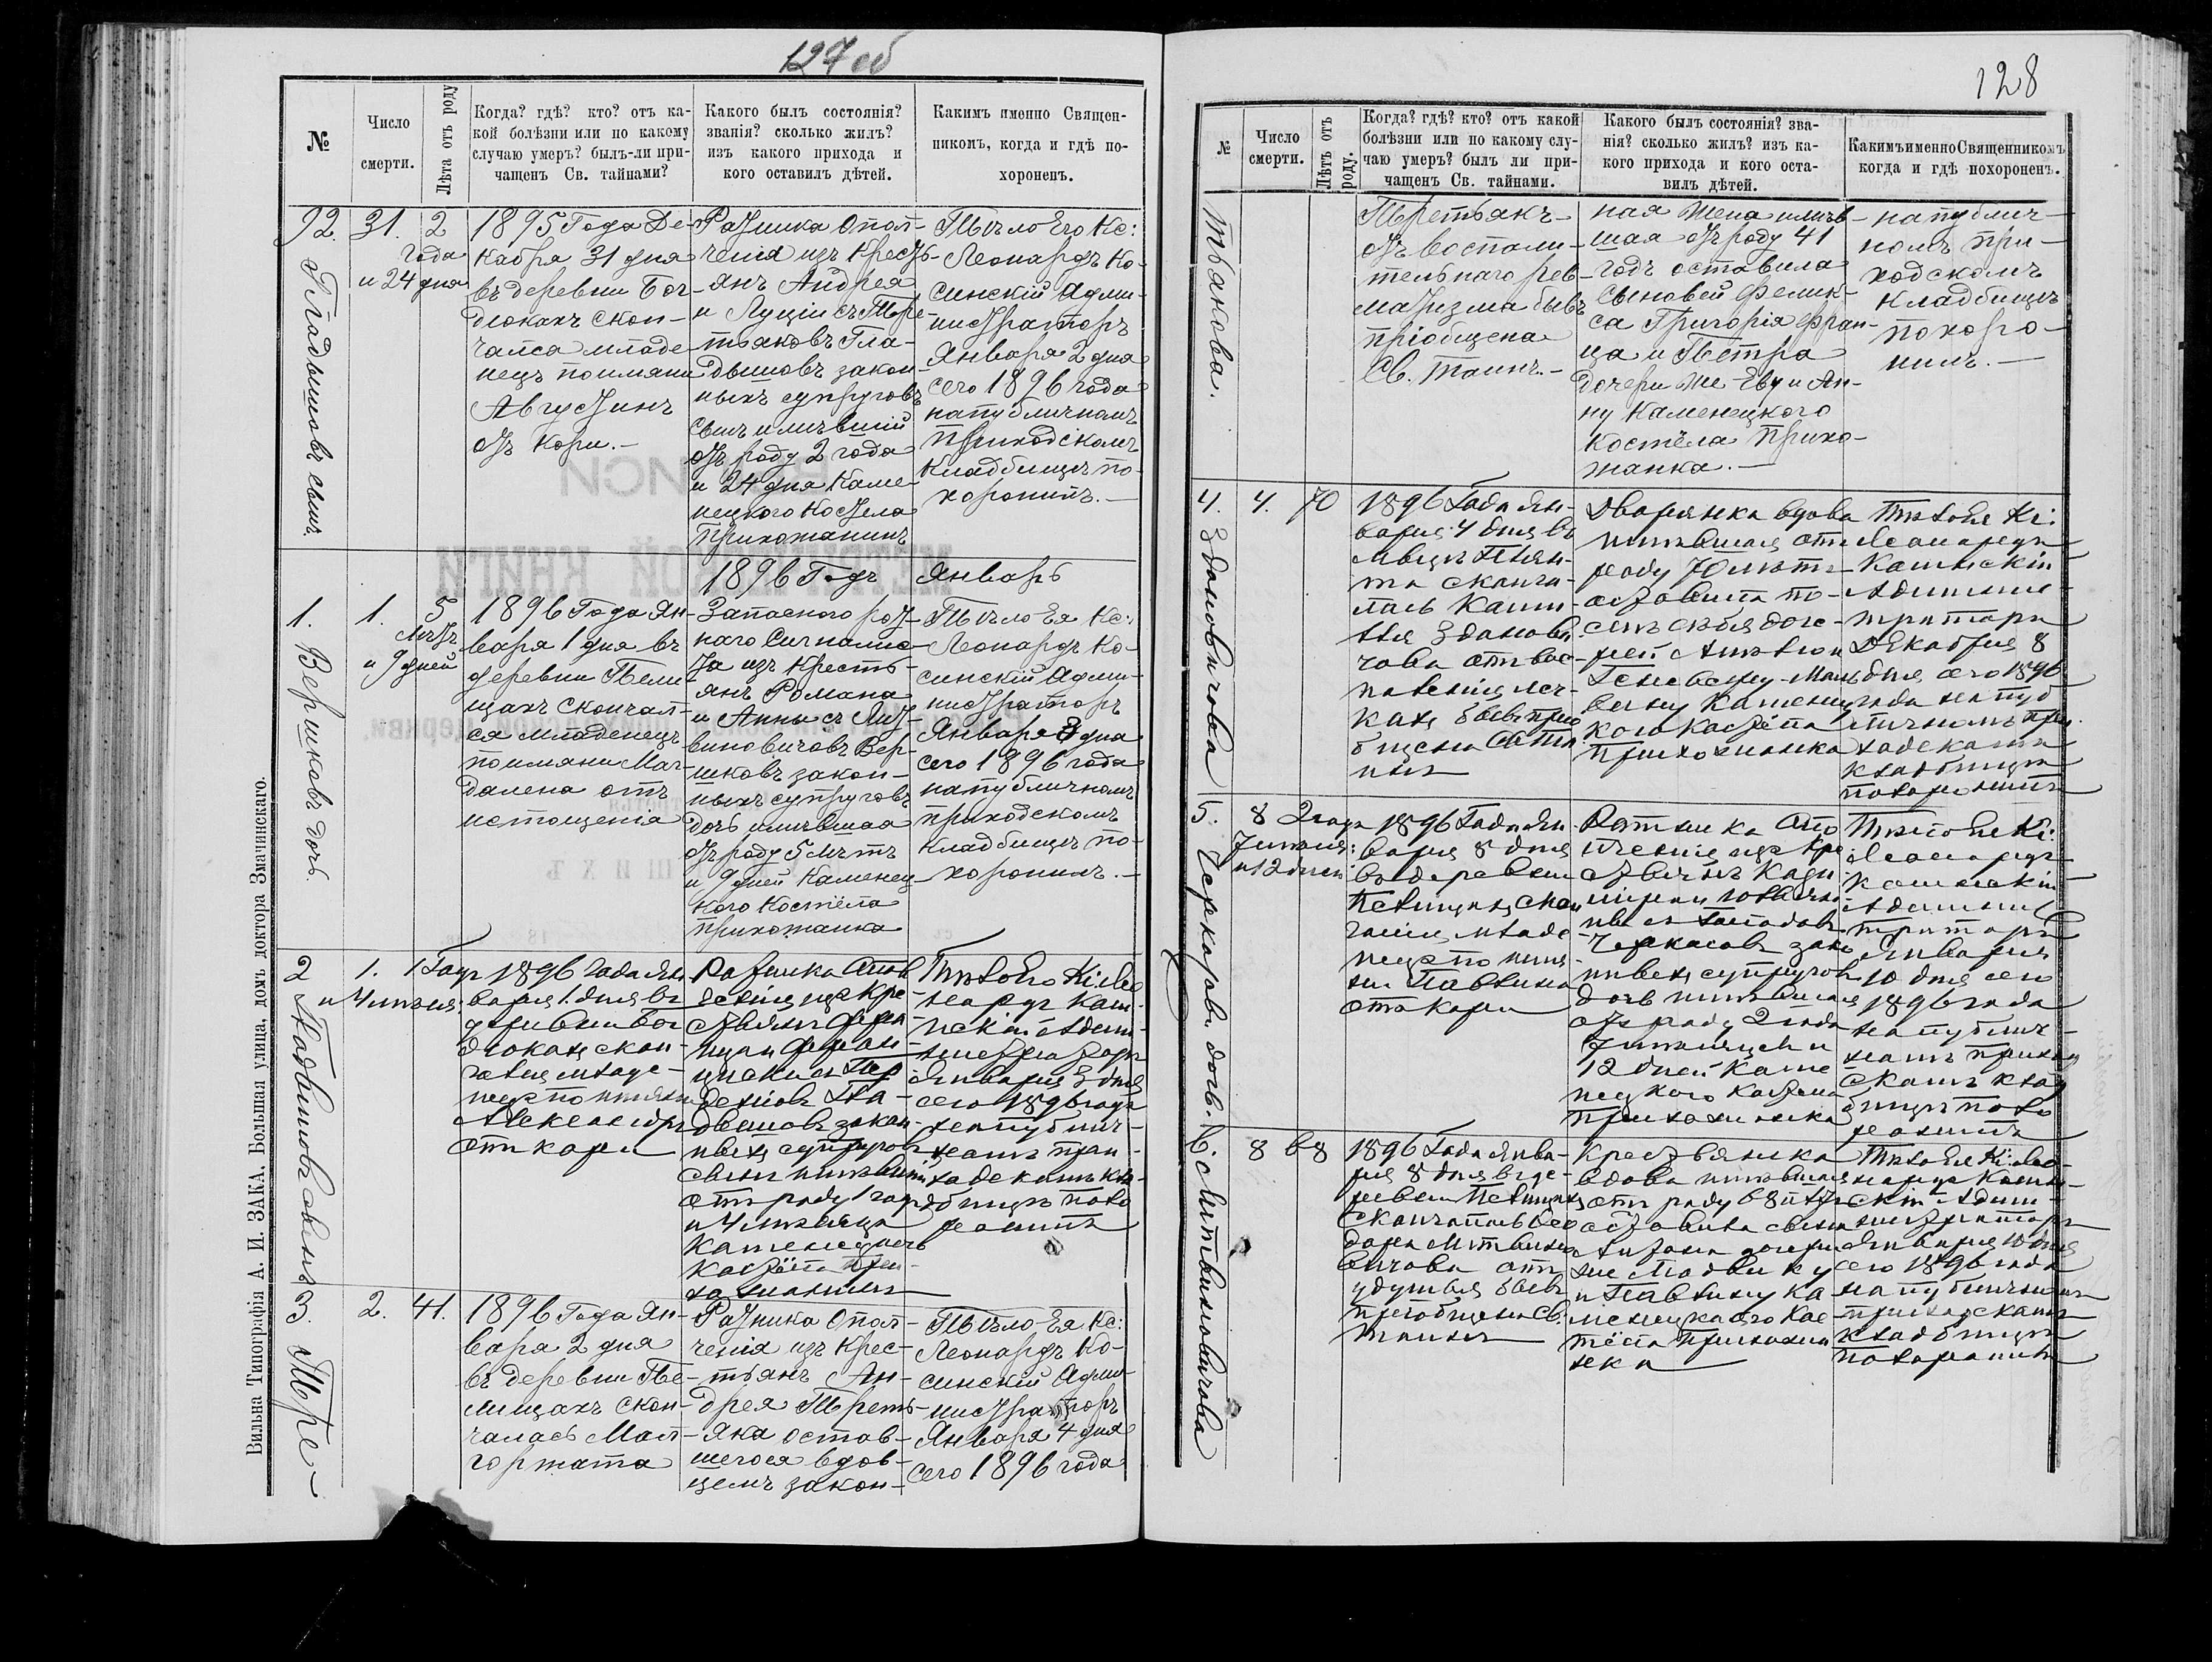 127 об
№
Число
смерти.
Лѣта отъ роду
Когда? гдѣ? кто? отъ ка-
кой болѣзни или по какому
случаю умеръ? былъ-ли при-
чащенъ Св. тайнами?
Какого былъ состоянія?
званія? сколько жилъ?
изъ какого прихода и
кого оставилъ дѣтей.
Какимъ именно Священ-
никомъ, когда и гдѣ по-
хороненъ.
92.
Гладышовъ сынъ.
31.
2
года
и 24 дня
1895 Года Де-
кабря 31 дня
въ деревни Бог-
дюкахъ скон-
чался младе-
нецъ поимяни
Августинъ
отъ кори.-
Ратника Опол-
ченія изъ кресть-
янъ Андрея
и Луціи съ Тре-
тьяковъ Гла-
дышовъ закон-
ныхъ супруговъ
сынъ имѣвшій
отъ роду 2 года
и 24 дня Каме-
нецкого Костела
прихожанинъ
Тѣло Его Кс:
Леонардъ Ко-
синскій Адми-
нистраторъ
Января 2 дня
сего 1896 года
на публичномъ
приходскомъ
кладбищѣ по-
хоронилъ.-
1896 Годъ
Январь
1.
Вершковъ дочь.
1.
5
лѣтъ
и 9 дней
1896 Года Ян-
варя 1 дня въ
деревни Пели-
щахъ скончал-
ся младенецъ
поимяни Маг-
далена отъ
истощенія
Запасного рот-
наго Сигналис-
та изъ кресть-
янъ Романа
и Анны съ Лит-
виновичовъ Вер-
шковъ закон-
ныхъ супруговъ
дочь имѣвшая
отъ роду 5 лѣтъ
и 9 дней Каменец-
кого Костёла
прихожанка
Тѣло Ея Кс:
Леонардъ Ко-
синскій Адми-
нистраторъ
Января 3 дня
сего 1896 года
на публичномъ
приходскомъ
кладбищѣ по-
хоронилъ.-
2
Гладышовъ сынъ
1.
1 Годъ
и 4 мѣсяц:
1896 Года Ян-
варя 1. дня въ
деревни Бог-
дюкахъ скон-
чался младе-
нецъ по имяни
Александръ
отъ кори
Ратника Опол-
ченія изъ кре-
стьянъ Фран-
цишки
Гла-
дышовъ закон-
ныхъ супруговъ
сынъ имѣвшій
отъ роду 1 годъ
и 4 мѣсяца
Каменецкого
Костёла при-
хожанинъ
Тѣло Его Кс: Лео-
нардъ Кося-
нскій Адми-
нистраторъ
Января 3 дня
сего 1896 года
на публич-
номъ при-
ходскомъ кла-
дбищѣ похо-
ронилъ
3.
Тре-
2.
41.
1896 Года Ян-
варя 2 дня
въ деревни Пе-
лищахъ скон-
чалась Мал-
горжата
Ратника Опол-
ченія изъ крес-
тьянъ Ан-
дрея Треть-
яка остав-
шегося вдов-
цемъ закон-
Тѣло Ея Кс:
Леонардъ Ко-
синскій Адми-
нистраторъ
Января 4 дня
сего 1896 года
Вильна Типографія А. И. ЗАКА. Большая улица, домъ доктора Змачинскаго.
128
№
Число
смерти.
Лѣтъ отъ
роду.
Когда? гдѣ? кто? отъ какой
болѣзни или по какому слу-
чаю умеръ? былъ ли при-
чащенъ Св. тайнами.
Какого былъ состоянія? зва-
нія? сколько жилъ? изъ ка-
кого прихода и кого оста-
вилъ дѣтей.
Какимъ именно Священникомъ
когда и гдѣ похороненъ.
тьякова.
Третьякъ-
отъ воспали-
тельнаго рев-
матизма бывъ
пріобщена
Св. таинъ.-
ная жена имѣв-
шая отъ роду 41
годъ оставила
сыновей Феликс-
са Григорія Фран-
ца и Петра
дочери же Еву и Ан-
ну Каменецкого
Костёла прихо-
жанка.-
на публич-
номъ при-
ходскомъ
кладбищѣ
похоро-
нилъ.-
4.
Здановичова
4.
70
1896 Года Ян-
варя 4 дня въ

скончалась

Здано-
чова отъ вос-
паленія лег-
кихъ бывъ прио-
бщена Св. Та-
инъ
Дворянка вдова
имѣвшая отъ
роду 70 лѣтъ
оставила по-
слѣ себя доче-
рей

Каменец-
кого Костёла
прихожанка
Тѣло Ея Кс:
Леонардъ
Косинскій
Админис-
траторъ
Декабря 8
дня сего 1896
года на пуб-
личномъ при-
ходскомъ
кладбищѣ
похоронилъ
5.
дочь.
8
2 года
7 мѣсяц:
и 12 дней
1896 Года Ян-
варя 8 дня
въ деревни
Пелищахъ скон-
чалась младе-
нецъ по имя-
ни Павлина
отъ кори
Ратника Опо-
лченія изъ кре-
стьянъ Кази-
мира

зако-
нныхъ супруговъ
дочь имѣвшая
отъ роду 2 года
7 мѣсяцевъ и
12 дней Каме-
нецкого Костела
прихожанка
Тѣло Ея Кс:
Леонардъ
Косинскій
Админис-
траторъ
Января
10 дня сего
1896 года
на публич-
номъ приход-
скомъ клад-
бищѣ похо-
ронилъ
6.
Литвиновичова
8
68
1896 Года Янва-
ря 8 дня въ де-
ревни Пелищахъ
скончалась Тео-
дора Литвино-
вичова отъ
удушья бывъ
пріобщена Св.
таинъ
Крестьянка
вдова имѣвшая
отъ роду 68 лѣтъ
оставила сына
Антона дочери
же Людвику
и Павлину Ка-
менецкого Кос-
тёла прихожан-
ка
Тѣло Ея Кс: Лео-
нардъ Косин-
скій Адми-
нистраторъ
Января 10 дня
сего 1896 года
на публичномъ
приходскомъ
кладбищѣ
похоронилъ